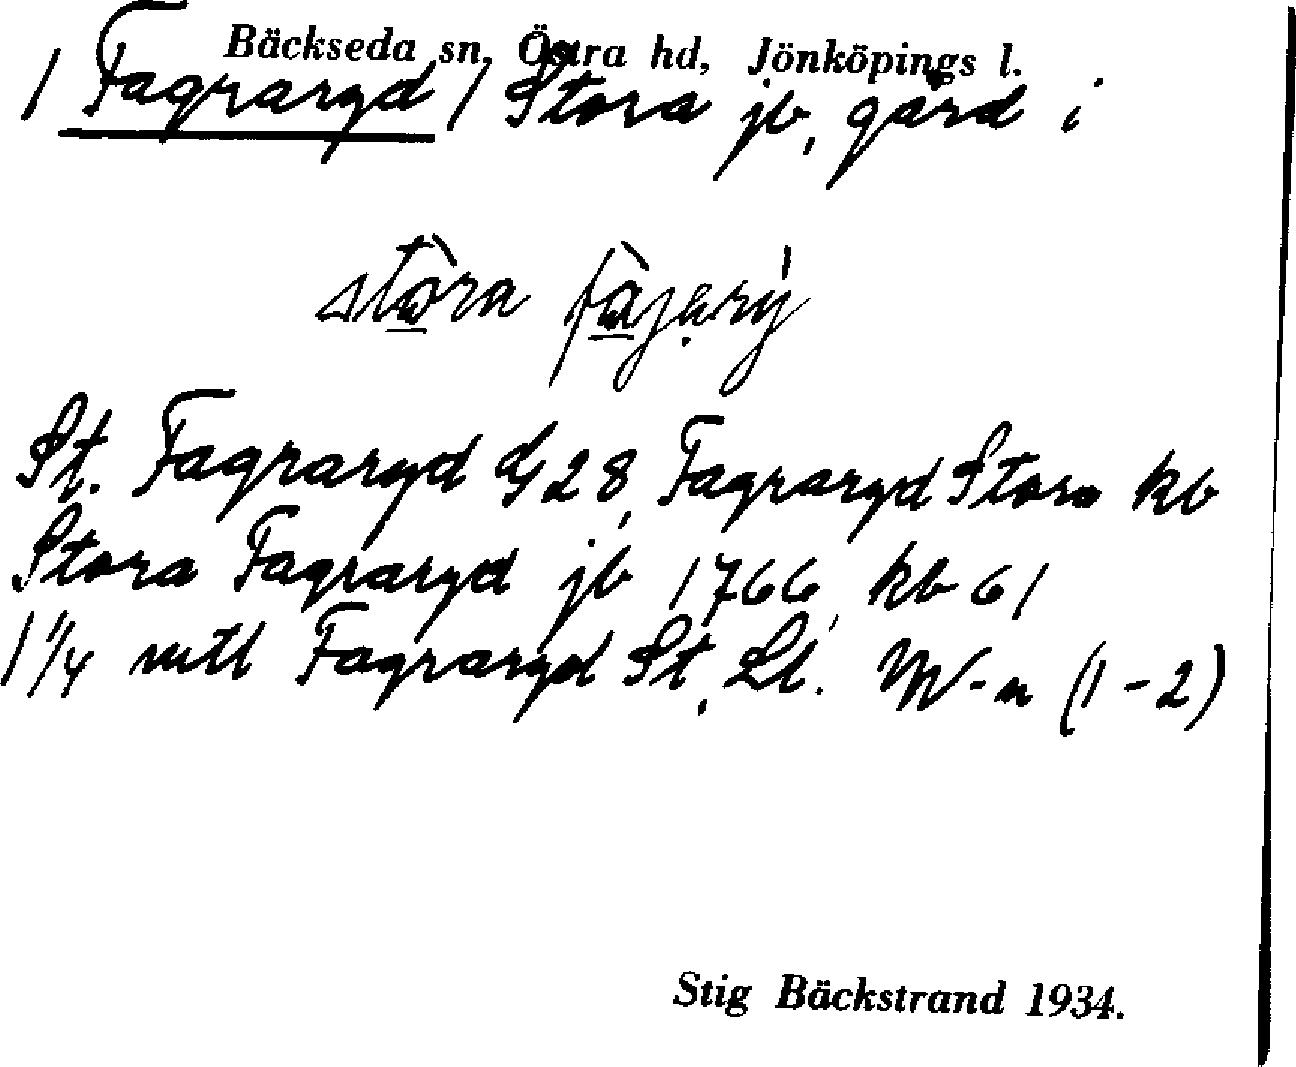 Bäckseda sn, Östra hd, Jönköpings l.
/ Fagraryd / Stora jb, gård i
stòra fàjarý
St. Fagraryd dy 28, Fagraryd Stora kb
Stora Fagraryd jb 1766, kb 61
1 1/4 mtl Fagraryd St, Ll. W-n (1-2)
Stig Bäckstrand 1934.